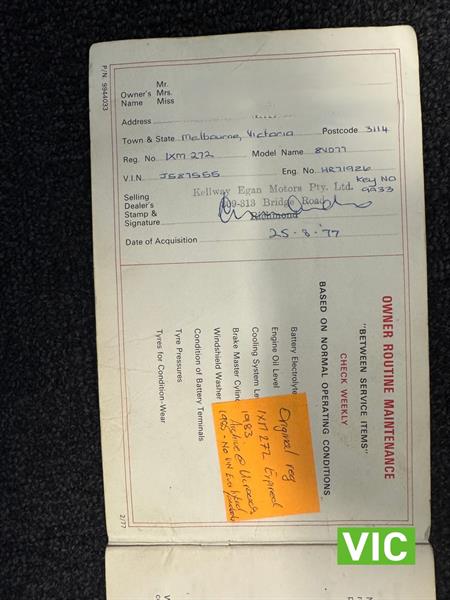 P/N 9944033
Mr.
Owner's Mrs.
Name Miss
Address
Town & State Melbourne, Victoria Postcode 3114
Reg. No. IXM 272 Model Name 8VD77
V.I.N. J587555 Eng. No. HR71926
Key NO
9933
Selling
Dealer's
Stamp &
Signature
Kellway Egan Motors Pty. Ltd.
09-313 Bridge Road
Richmond
Date of Acquisition 25-8-'77
OWNER ROUTINE MAINTENANCE
"BETWEEN SERVICE ITEMS"
CHECK WEEKLY
BASED ON NORMAL OPERATING CONDITIONS
Battery Electrolyte
Engine Oil Level
Cooling System Le
Brake Master Cylind
Windshield Washer
Condition of Battery Terminals
Tyre Pressures
Tyres for Condition-Wear
Original reg
IXM 272 Expired
1983
1985 - No VIN
2/77
VIC